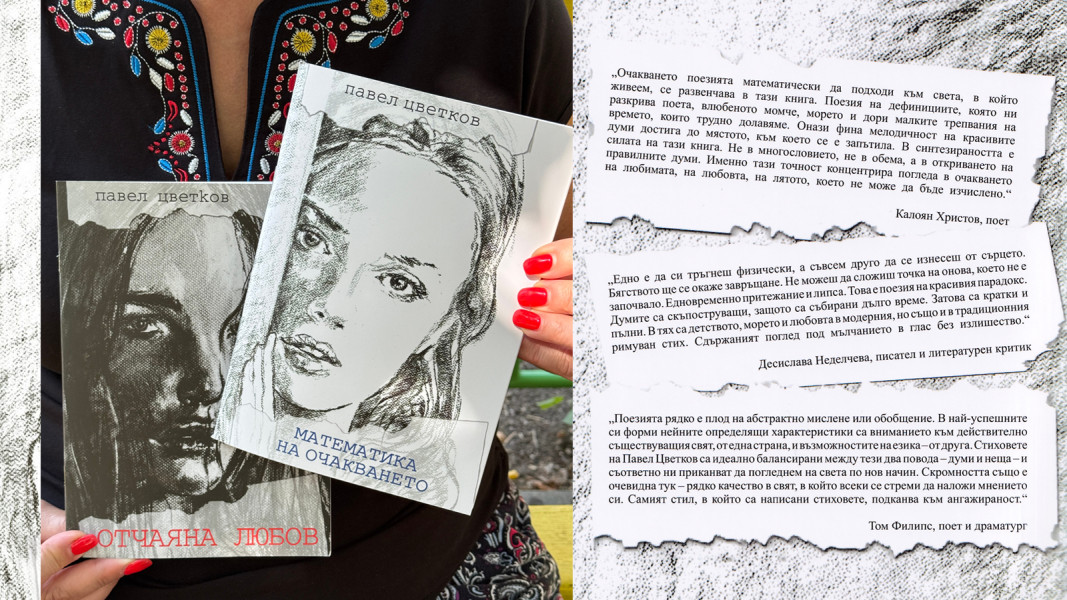 павел цветков
МАТЕМАТИКА
НА ОЧАКВАНЕТО
павел цветков
ОТЧАЯНА ЛЮБОВ
„Очакването поезията математически да подходи към света, в който
живеем, се развенчава в тази книга. Поезия на дефинициите, която ни
разкрива поета, влюбеното момче, морето и дори малките трепвания на
времето, които трудно долавяме. Онази фина мелодичност на красивите
думи достига до мястото, към което се е запътила. В синтезираността е
силата на тази книга. Не в многословието, не в обема, а в откриването на
правилните думи. Именно тази точност концентрира погледа в очакването
на любимата, на любовта, на лятото, което не може да бъде изчислено.“
Калоян Христов, поет
„Едно е да си тръгнеш физически, а съвсем друго да се изнесеш от сърцето.
Бягството ще се окаже завръщане. Не можеш да сложиш точка на онова, което не е
започвало. Едновременно притежание и липса. Това е поезия на красивия парадокс.
Думите са скъпоструващи, защото са събирани дълго време. Затова са кратки и
пълни. В тях са детството, морето и любовта в модерния, но също и в традиционния
римуван стих. Сдържаният поглед под мълчанието в глас без излишество.“
Десислава Неделчева, писател и литературен критик
„Поезията рядко е плод на абстрактно мислене или обобщение. В най-успешните
си форми нейните определящи характеристики са вниманието към действително
съществуващия свят, от една страна, и възможностите на езика – от друга. Стиховете
на Павел Цветков са идеално балансирани между тези два повода – думи и неща – и
съответно ни приканват да погледнем на света по нов начин. Скромността също е
очевидна тук – рядко качество в свят, в който всеки се стреми да наложи мнението
си. Самият стил, в който са написани стиховете, подканва към ангажираност.“
Том Филипс, поет и драматург